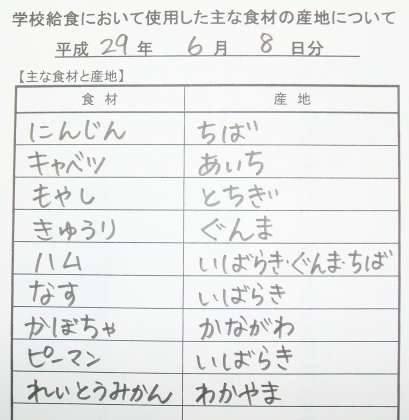 学校給食において使用した主な食材の産地について
平成 29 年 6 月 8 日分
【主な食材と産地】
食材 産地
にんじん ちば
キャベツ あいち
もやし とちぎ
きゅうり ぐんま
ハム いばらき・ぐんま・ちば
なす いばらき
かぼちゃ かながわ
ピーマン いばらき
れいとうみかん わかやま